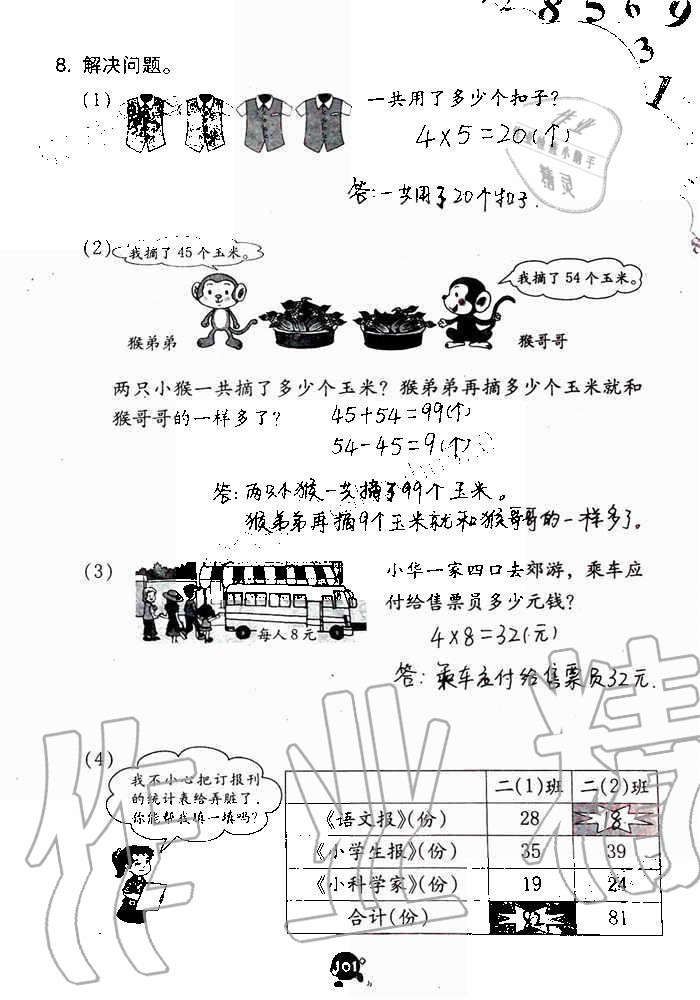 2 8 5 6 9
3
1
8. 解决问题。
(1)
一共用了多少个扣子？
4×5=20(个)
答:一共用了20个扣子.
作业
精灵
(2)
我摘了 45 个玉米。
我摘了 54 个玉米。
猴弟弟
猴哥哥
两只小猴一共摘了多少个玉米？猴弟弟再摘多少个玉米就和
猴哥哥的一样多了？
45+54=99(个)
54-45=9(个)
答:两只小猴一共摘了99个玉米。
猴弟弟再摘9个玉米就和猴哥哥的一样多了。
(3)
每人 8 元
小华一家四口去郊游，乘车应
付给售票员多少元钱？
4×8=32(元)
答:乘车应付给售票员32元.
(4)
我不小心把订报刊
的统计表给弄脏了，
你能帮我填一填吗？
二(1)班 二(2)班
《语文报》(份) 28 18
《小学生报》(份) 35 39
《小科学家》(份) 19 24
合计(份) 82 81
101
作业精